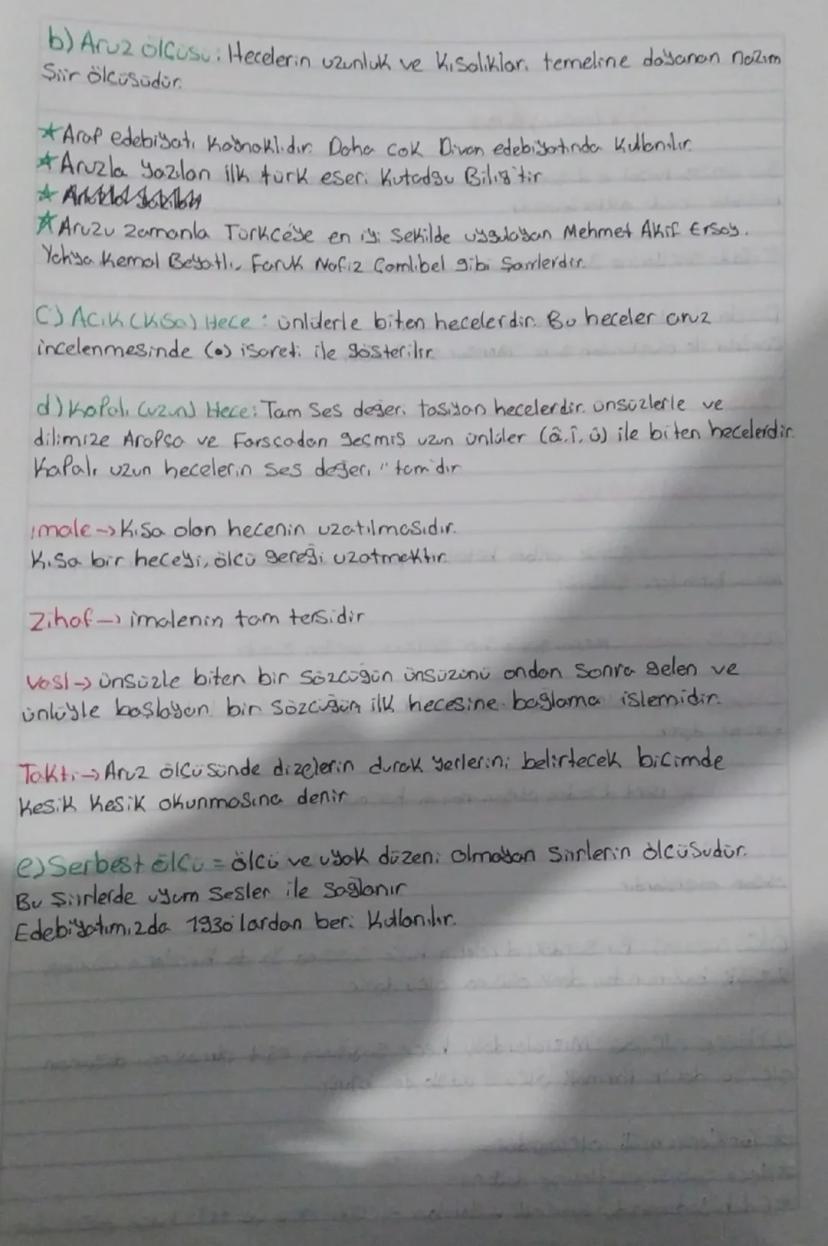 b) Aruz ölçüsü: Hecelerin uzunluk ve kısalıkları temeline dayanan nazım
Şiir ölçüsüdür.
★Arap edebiyatı kaynaklıdır. Daha çok Divan edebiyatında kullanılır.
★Aruzla yazılan ilk türk eseri Kutadgu Bilig'tir
★
★Aruzu zamanla Türkçeye en iyi şekilde uygulayan Mehmet Akif Ersoy.
Yahya Kemal Beyatlı, Faruk Nafiz Çamlıbel gibi Şairlerdir.
C) Açık (Kısa) Hece: ünlülerle biten hecelerdir. Bu heceler aruz
incelenmesinde (•) işareti ile gösterilir.
d) Kapalı (uzun) Hece: Tam ses değeri taşıyan hecelerdir. ünsüzlerle ve
dilimize Arapça ve Farsçadan geçmiş uzun ünlüler (â, î, û) ile biten hecelerdir.
Kapalı uzun hecelerin ses değeri "tam'dır
imale → Kısa olan hecenin uzatılmasıdır.
Kısa bir heceyi, ölçü gereği uzatmaktır.
Zihaf → imalenin tam tersidir
Vasl → ünsüzle biten bir sözcüğün ünsüzünü ondan sonra gelen ve
ünlüyle başlayan bir sözcüğün ilk hecesine bağlama işlemidir.
Taktı → Aruz ölçüsünde dizelerin durak yerlerini belirtecek biçimde
kesik kesik okunmasına denir
e) Serbest ölçü = ölçü ve uyak düzeni olmayan şiirlerin ölçüsüdür.
Bu şiirlerde uyum sesler ile sağlanır
Edebiyatımızda 1930'lardan beri kullanılır.